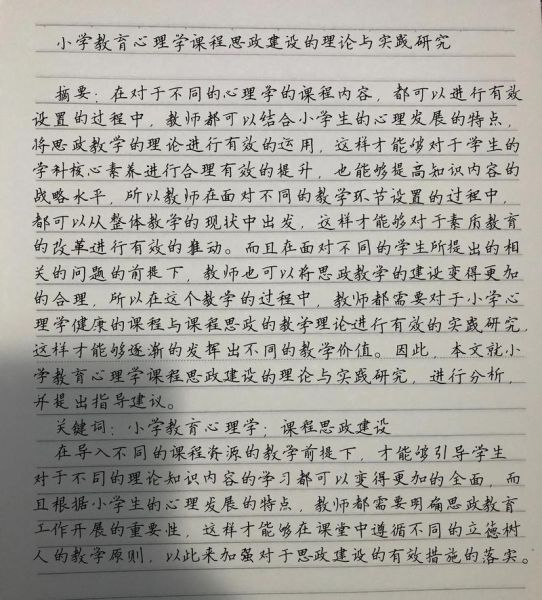 小学教育心理学课程思政建设的理论与实践研究
摘要：在对于不同的心理学的课程内容，都可以进行有效
设置的过程中，教师都可以结合小学生的心理发展的特点，
将思政教学的理论进行有效的运用，这样才能够对于学生的
学科核心素养进行合理有效的提升，也能够提高知识内容的
战略水平，所以教师在面对不同的教学环节设置的过程中，
都可以从整体教学的现状中出发，这样才能够对于素质教育
的改革进行有效的推动。而且在面对不同的学生所提出的相
关的问题的前提下，教师也可以将思政教学的建设变得更加
的合理，所以在这个教学的过程中，教师都需要对于小学心
理学健康的课程与课程思政的教学理论进行有效的实践研究，
这样才能够逐渐的发挥出不同的教学价值。因此，本文就小
学教育心理学课程思政建设的理论与实践研究，进行分析，
并提出指导建议。
关键词：小学教育心理学；课程思政建设
在导入不同的课程资源的教学前提下，才能够引导学生
对于不同的理论知识内容的学习都可以变得更加的全面，而
且根据小学生的心理发展的特点，教师都需要明确思政教育
工作开展的重要性，这样才能够在课堂中遵循不同的立德树
人的教学原则，以此来加强对于思政建设的有效措施的落实。